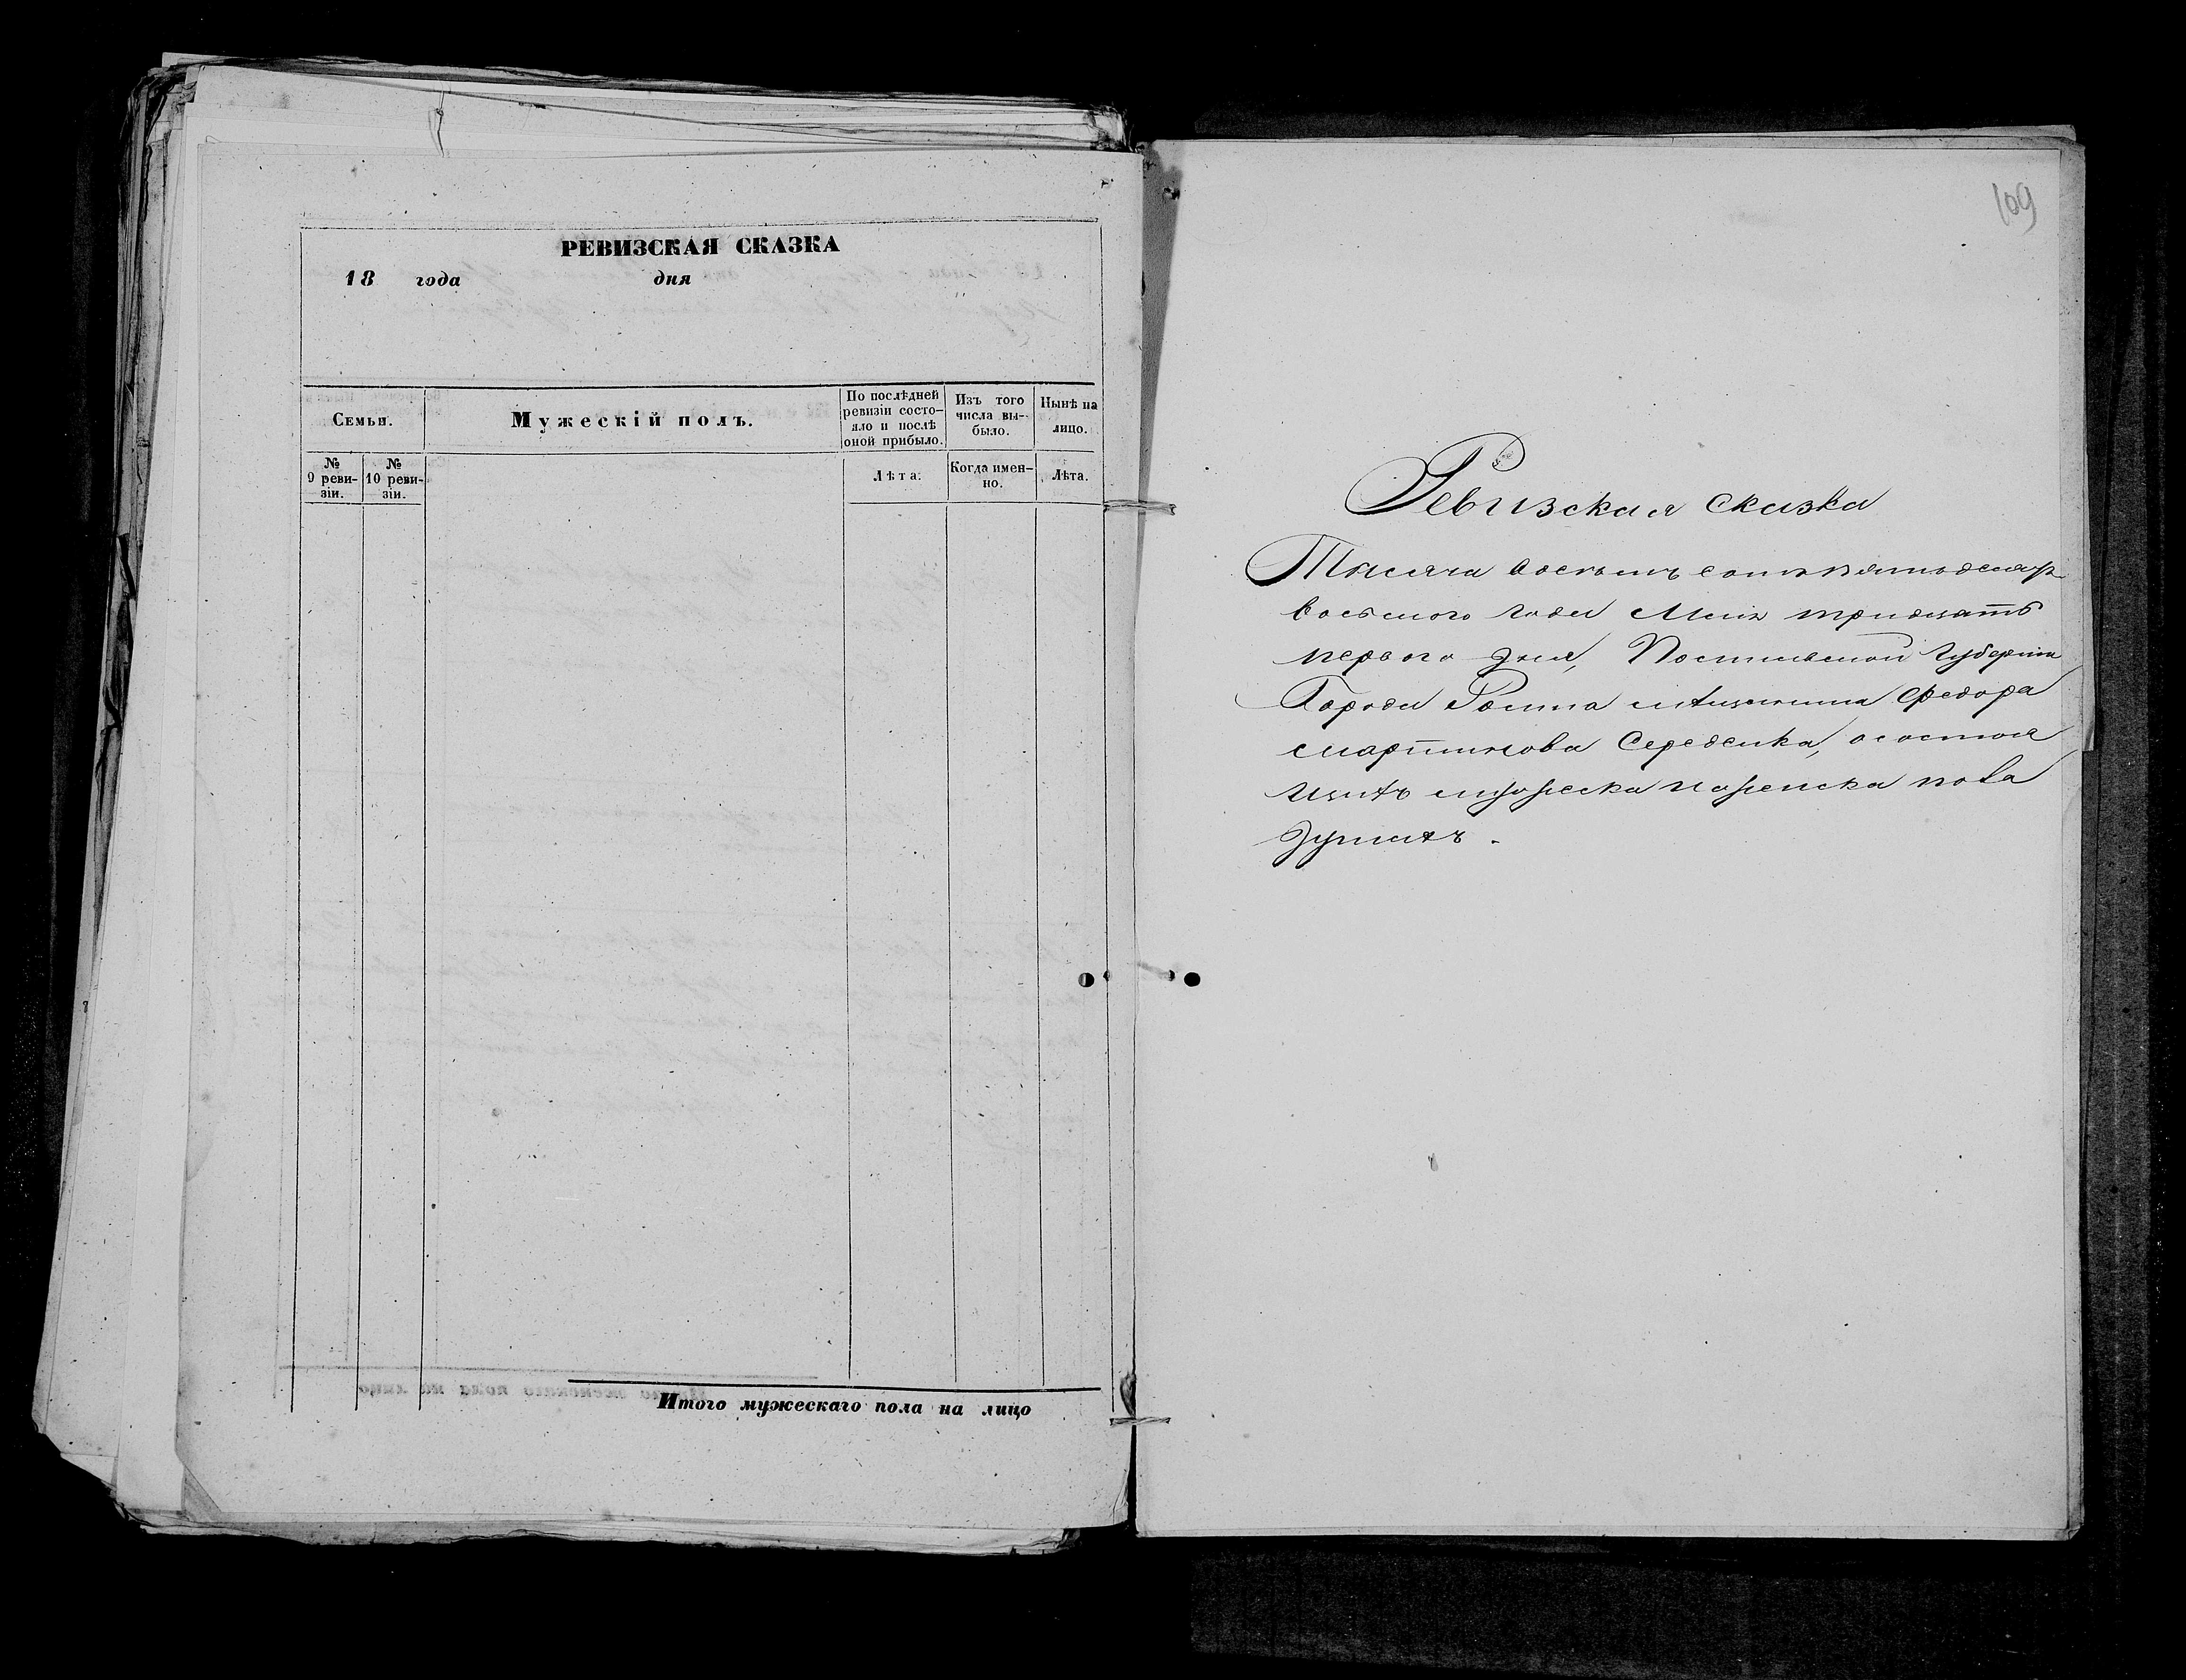 РЕВИЗСКАЯ СКАЗКА
18 года дня
Семьи.
Мужескій полъ.
По послѣдней
ревизіи состо-
яло и послѣ
оной прибыло.
Изъ того
числа вы-
было.
Нынѣ на
лицо.
№
9 реви-
зіи.
№
10 реви-
зіи.
Лѣта.
Когда имен-
но.
Лѣта.
Итого мужескаго пола на лицо
109
Ревизская сказка
Тысяча восемь сотъ пятьдесятъ
восьмого года Маія тридцать
первого дня, Полтавской Губерніи
Города Ромна мѣщанина Федора
Мартинова Середенка, о состоя
щихъ мужеска и женска пола
душахъ.